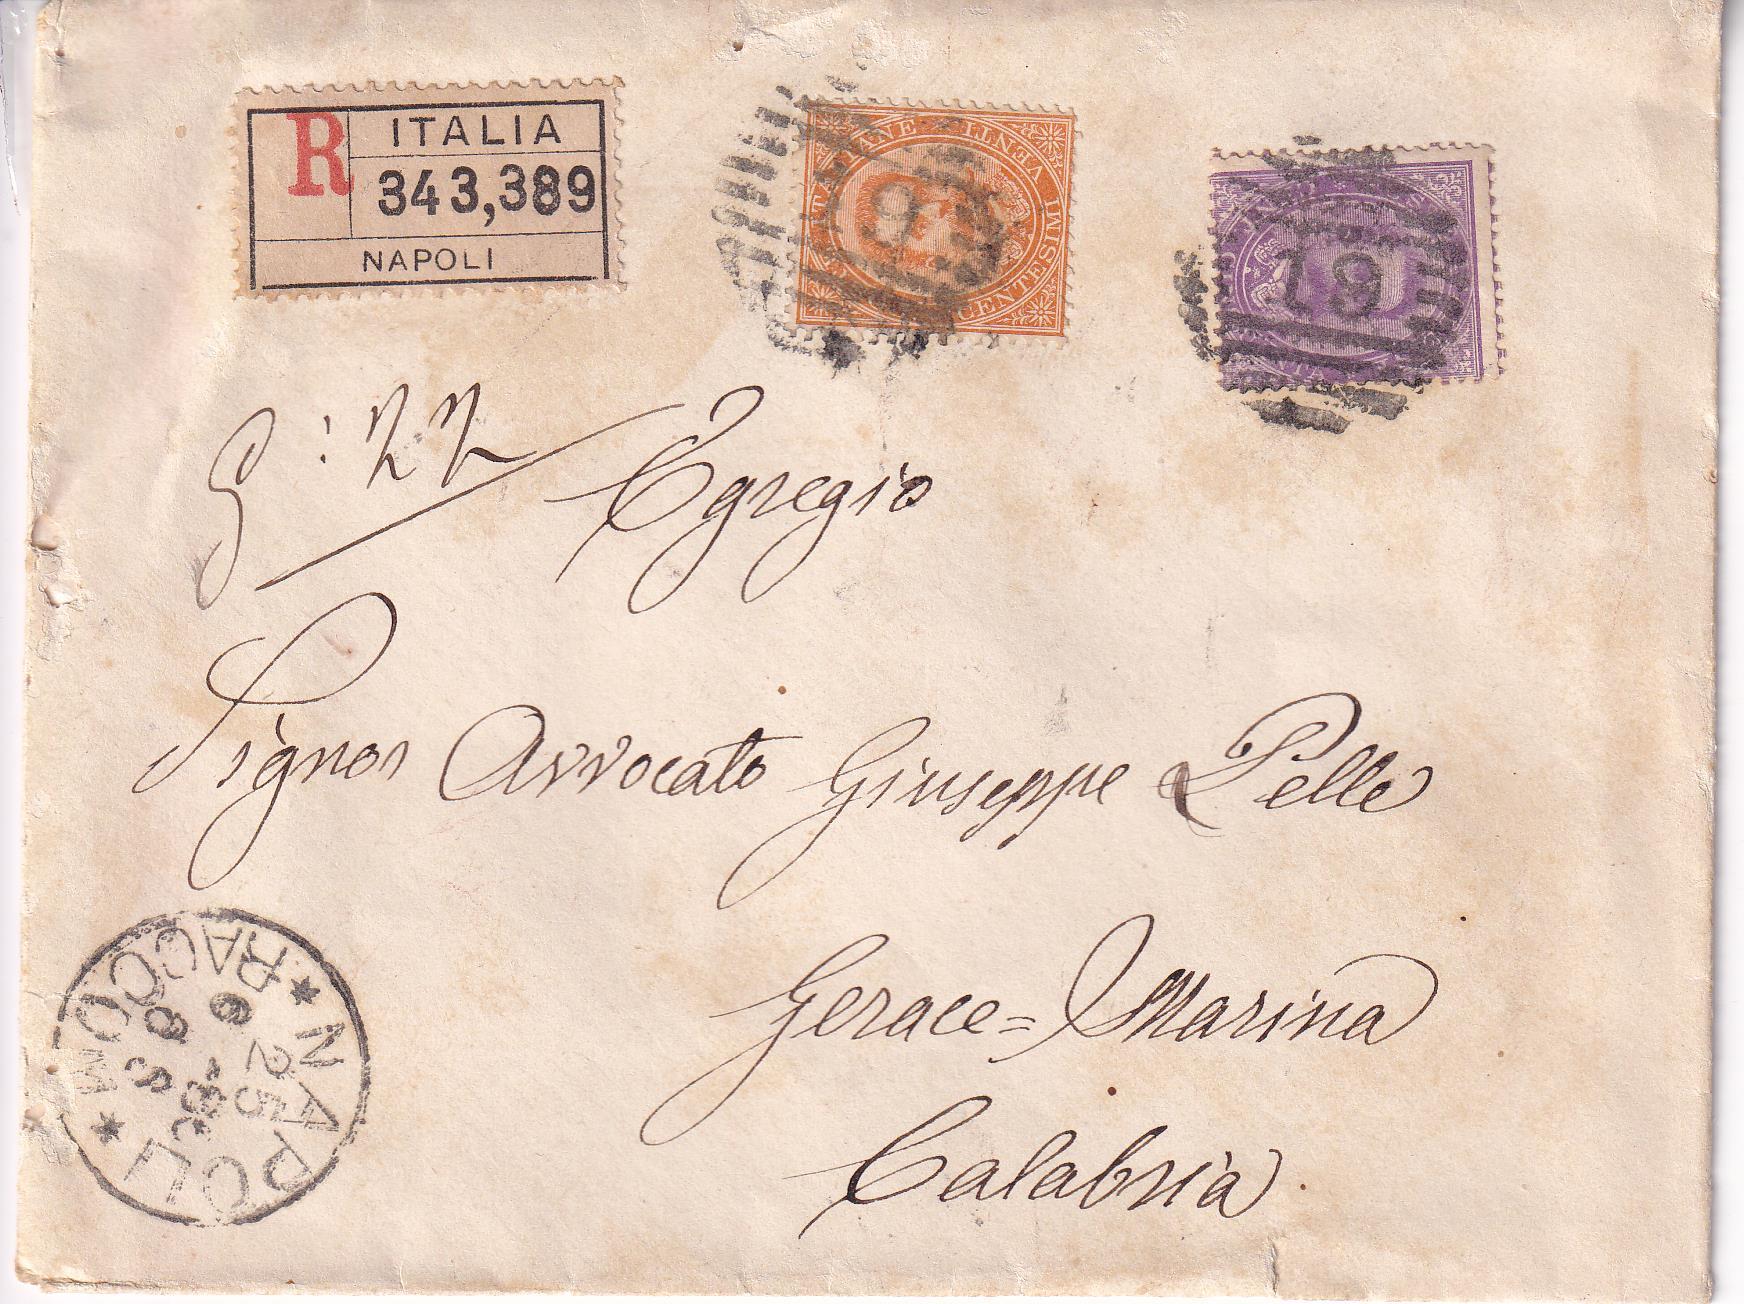 R ITALIA
343,389
NAPOLI
VENTI CENTESIMI
9
19
Egregio
Signor Avvocato Giuseppe Pelle
Gerace=Marina
Calabria
★ NAPOLI ★
RACCOM
6 25
8 S